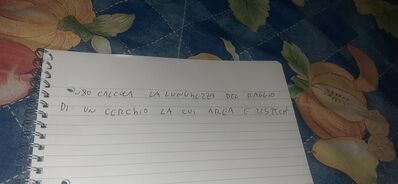 CALCOLA LA LUNGHEZZA DEL RAGGIO
DI UN CERCHIO LA CUI AREA E